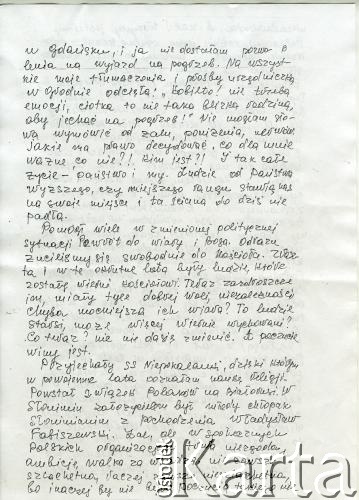 w Gdańsku, i ja nie dostałam pozwo
lenia na wyjazd na pogrzeb. Na wszyst
kie moje tłumaczenia i prośby urzędniczka
w Grodnie odcięła: "Kobieto! nie trzeba
emocji, ciotka to nie taka bliska rodzina,
aby jechać na pogrzeb!" Nie mogłam sło-
wa wymówić od żalu, poniżenia, nerwów.
Jakie ma prawo decydować, co dla mnie
ważne co nie?!. Kim jest?! I tak całe
życie - państwo i my. Ludzie od państwa
wyższego, czy mniejszego rangu stawią nas
na swoje miejsce i ta ściana do dziś nie
padła.
Pomógł wiele w zmienionej politycznej
sytuacji Powrót do wiary i Boga. Odrazu
rzuciliśmy się swobodnie do kościoła.
ta i w te okrutne lata byli ludzie, które
zostały wierni kościołowi. Teraz
miały tyle dobrej woli,
chyba mocniejsza ich wiara? To ludzie
starsi, może więcej wiernie wychowani?
Co teraz? nie nie dasię zmienić. A poczucie
winy jest.
Przyjechały SS Niepokalanki, dzięki którym
w powojenne lata poznałam naukę religji.
Powstał Związek Polaków na Białorusi. W
Słonimiu założycielem był młody chłopak
Słonimianin z pochodzenia Władysław
w społecznych
Polskich organizacjach niezgoda,
ambicje, walka za
szlachetna,
bo inaczej by nie
Ośrodek Karta